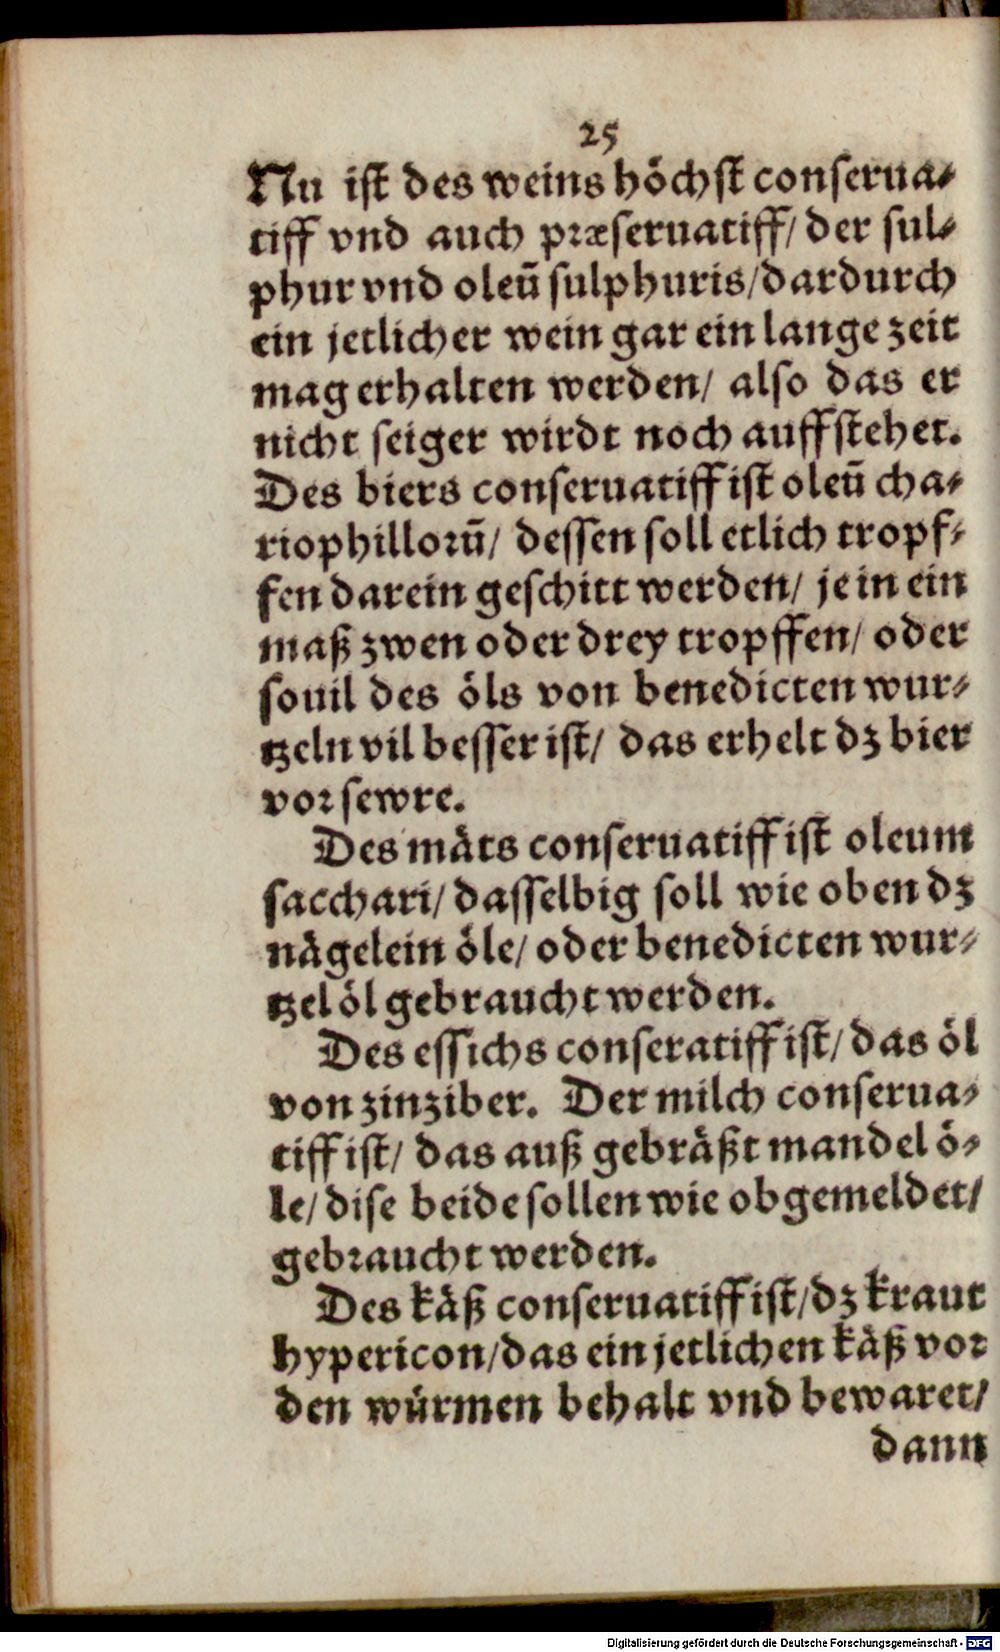 25
Nu ist des weins höchst conserua⸗
tiff vnd auch præseruatiff/ der sul⸗
phur vnd oleū sulphuris/dardurch
ein jetlicher wein gar ein lange zeit
mag erhalten werden/ also das er
nicht seiger wirdt noch auffstehet.
Des biers conseruatiff ist oleū cha⸗
riophillorū/ dessen soll etlich tropf⸗
fen darein geschitt werden/ je in ein
maß zwen oder drey tropffen/ oder
souil des öls von benedicten wur⸗
tzeln vil besser ist/ das erhelt dz bier
vor sewre.
Des mäts conseruatiff ist oleum
sacchari/ dasselbig soll wie oben dz
nägelein öle/ oder benedicten wur⸗
tzel öl gebraucht werden.
Des essichs conseratiff ist/ das öl
von zinziber. Der milch conserua⸗
tiff ist/ das auß gebräßt mandel ö⸗
le/ dise beide sollen wie obgemeldet/
gebraucht werden.
Des käß conseruatiff ist/dz kraut
hypericon/das ein jetlichen käß vor
den würmen behalt vnd bewaret/
dann
Digitalisierung gefördert durch die Deutsche Forschungsgemeinschaft - DFG